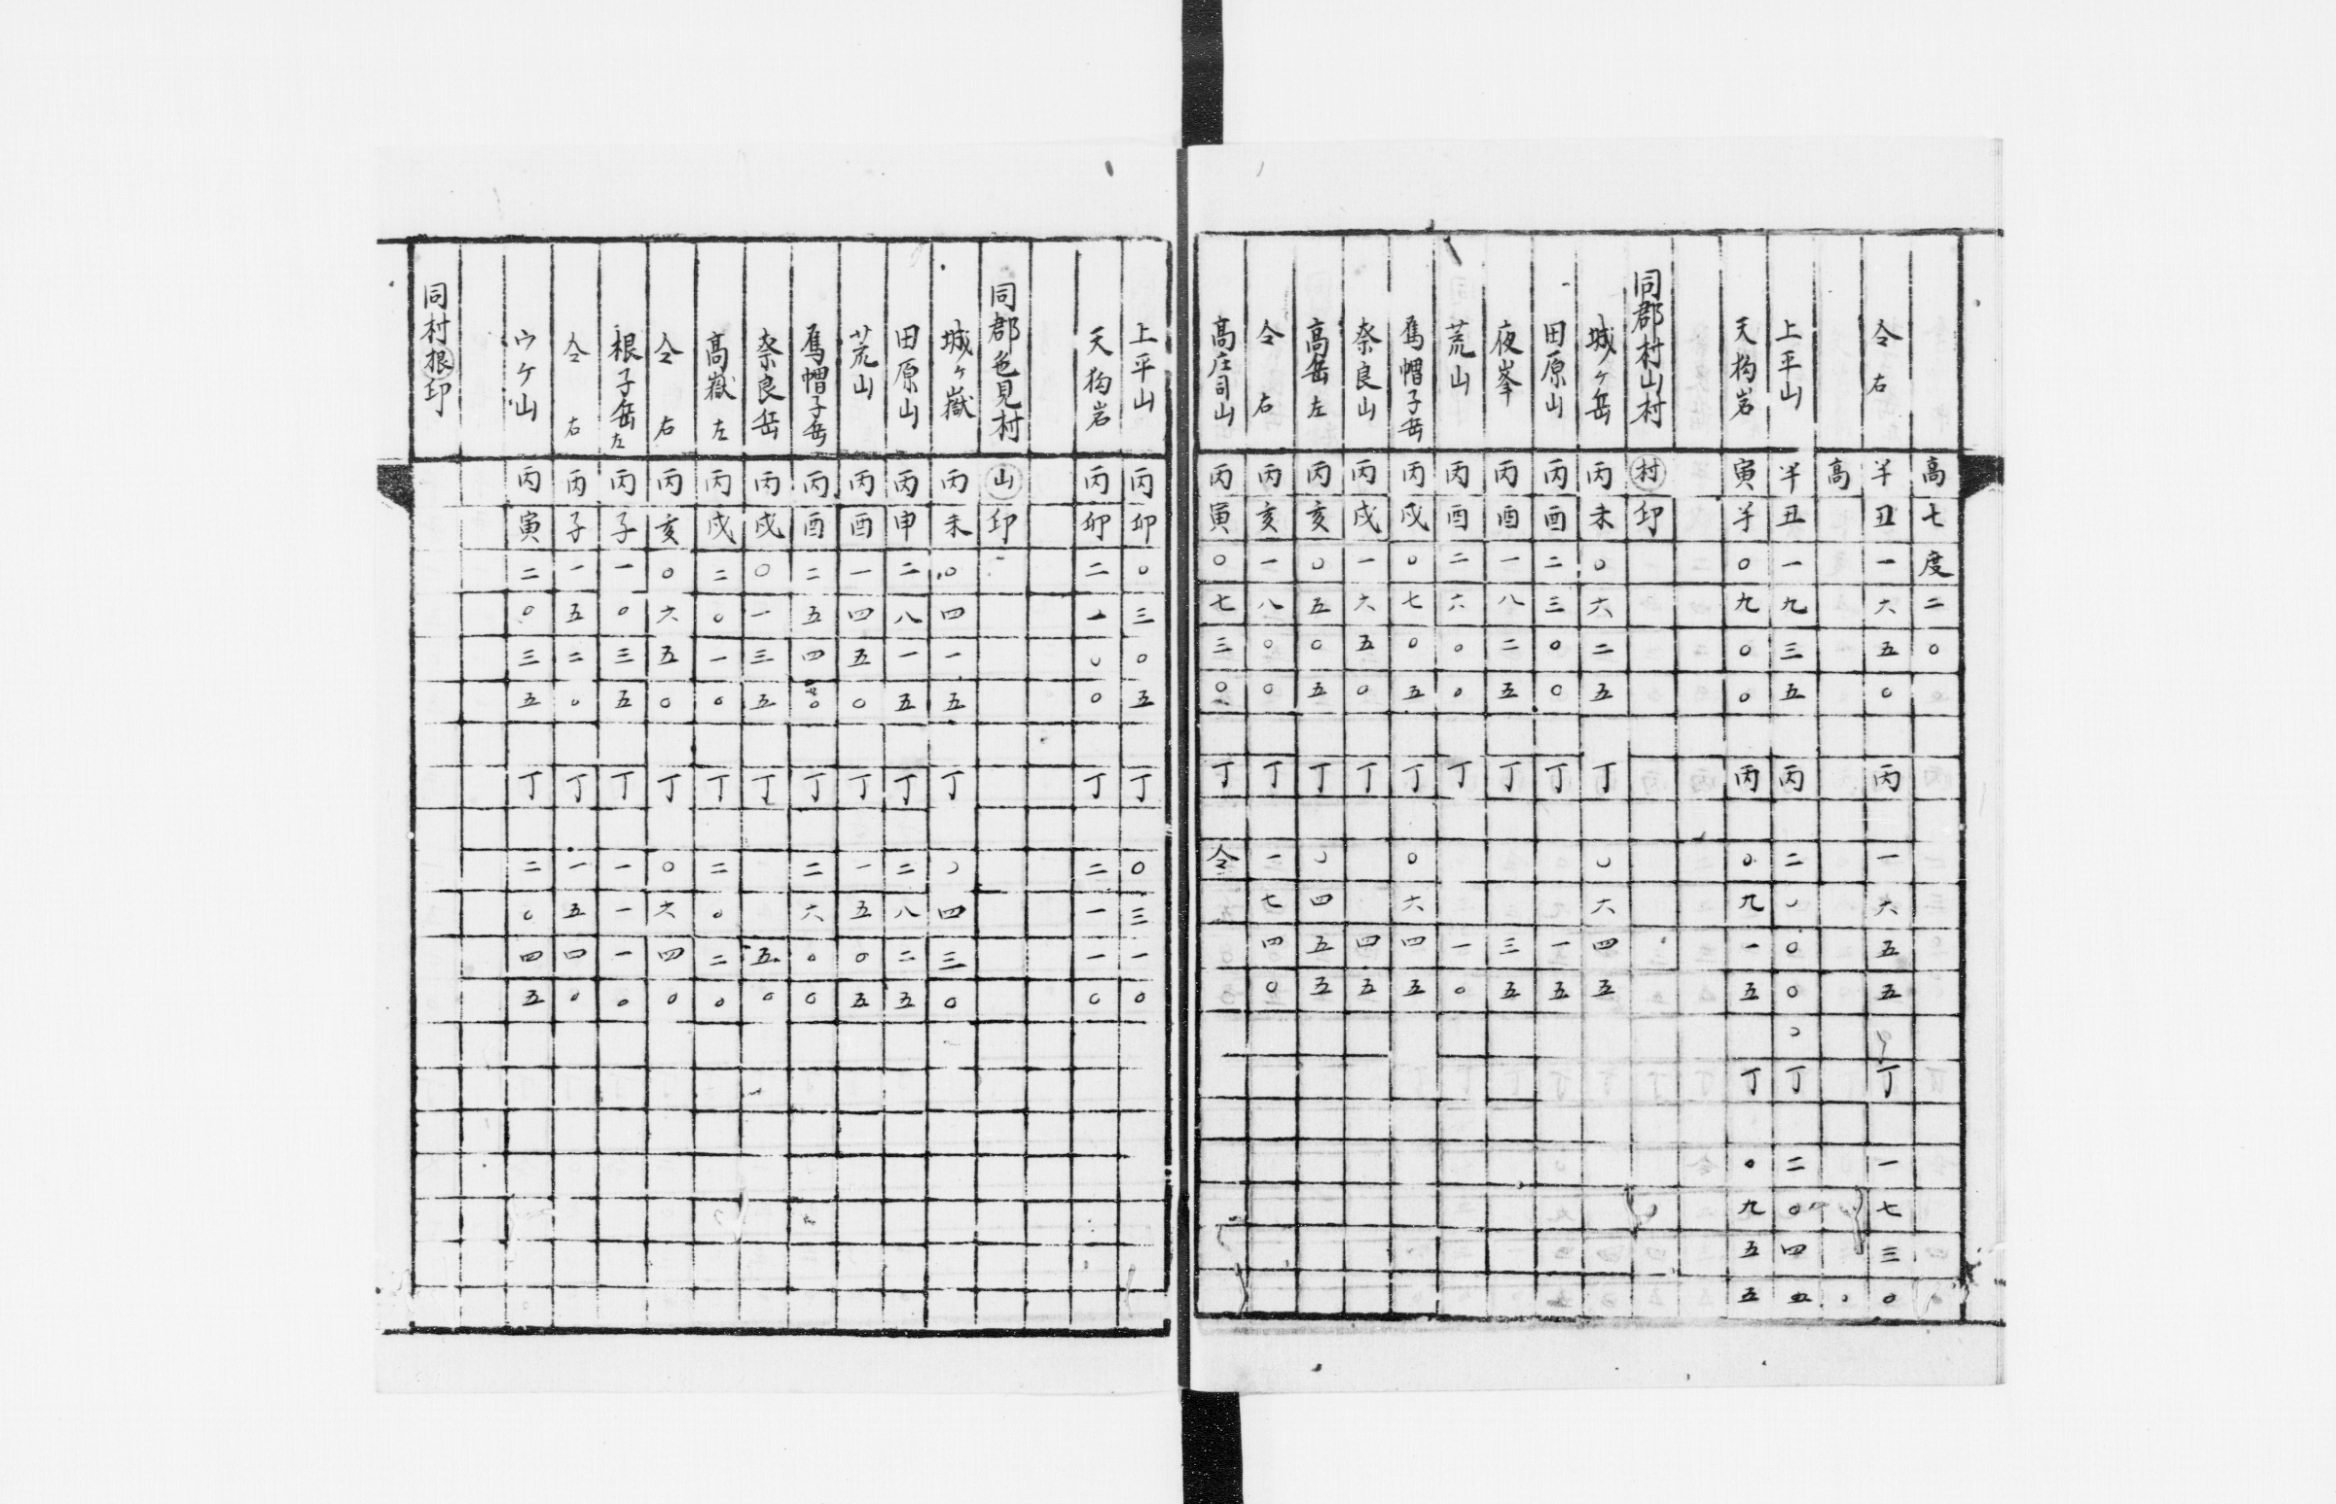 高七度二〇
仝 右 半丑一六五〇 丙 一六五五 丁 一七三〇
高
上平山 半丑一九三五 丙 二〇〇〇 丁 二〇四五
天狗岩 寅半〇九〇〇 丙 〇九一五 丁 〇九五五
同郡村山村 村印
城ヶ岳 丙未〇六二五 丁 〇六四五
田原山 丙酉二三〇〇 丁 一五
夜峯 丙酉一八二五 丁 三五
荒山 丙酉二六〇〇 丁 一〇
烏帽子岳 丙戌〇七〇五 丁 〇六四五
奈良山 丙戌一六五〇 丁 四五
高岳 左 丙亥〇五〇五 丁 〇四五五
仝 右 丙亥一八〇〇 丁 一七四〇
高庄司山 丙寅〇七三〇 丁 仝
上平山 丙卯〇三〇五 丁 〇三一〇
天狗岩 丙卯二一〇〇 丁 二一一〇
同郡色見村 山印
城ヶ嶽 丙未〇四一五 丁 〇四三〇
田原山 丙申二八一五 丁 二八二五
荒山 丙酉一四五〇 丁 一五〇五
烏帽子岳 丙酉二五四〇 丁 二六〇〇
奈良岳 丙戌〇一三五 丁 五〇
高嶽 左 丙戌二〇一〇 丁 二〇二〇
仝 右 丙亥〇六五〇 丁 〇六四〇
根子岳 左 丙子一〇三五 丁 一一一〇
仝 右 丙子一五二〇 丁 一五四〇
ウケ山 丙寅二〇三五 丁 二〇四五
同村根印